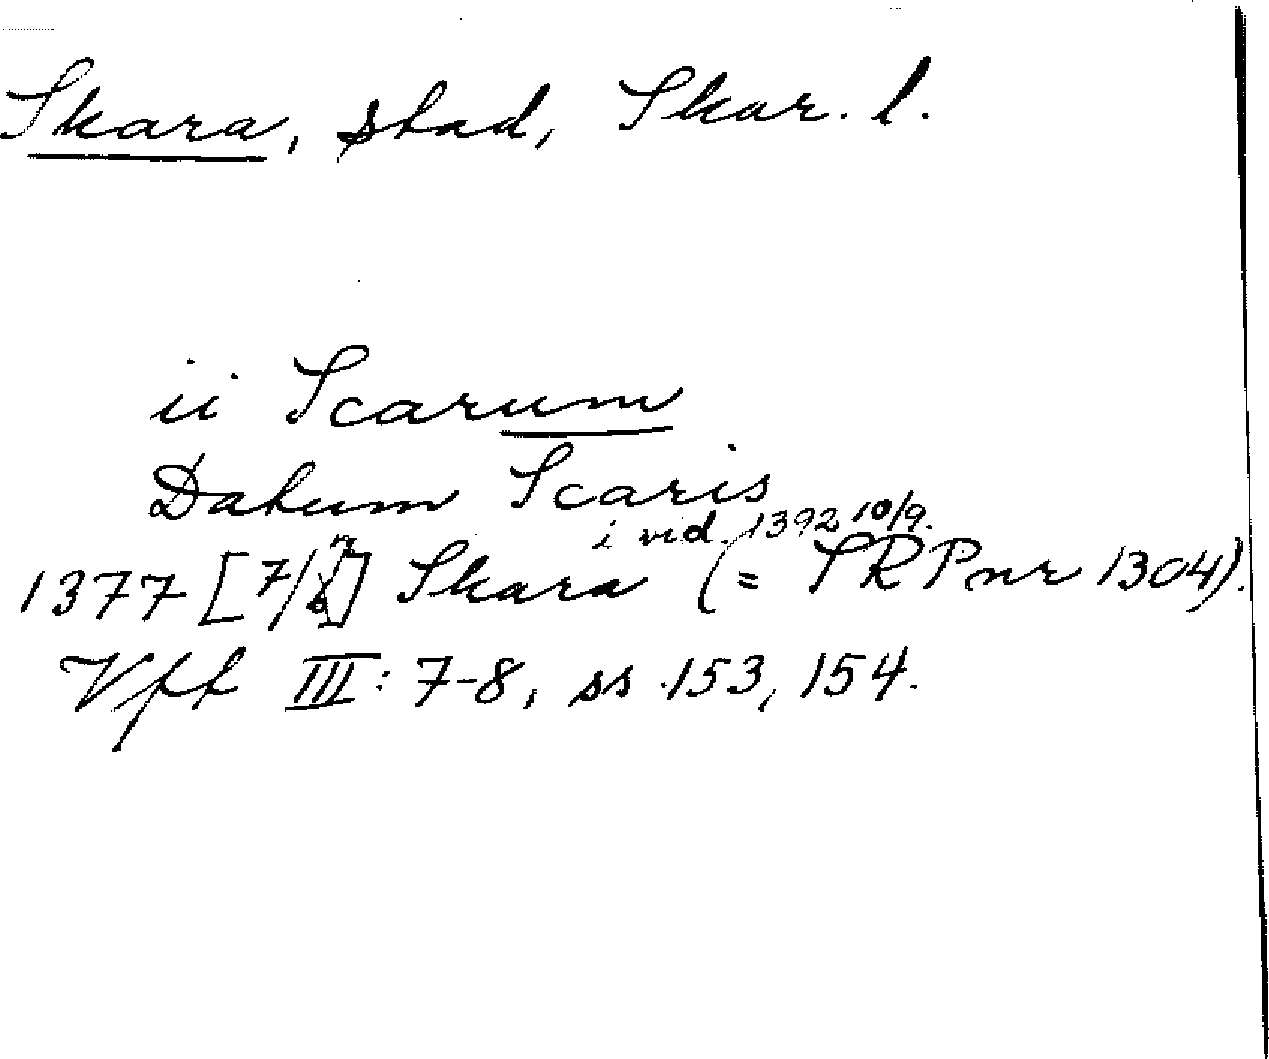 Skara, stad, Skar. l.
ii Scarum
Datum Scaris
i vid. 1392 10/9.
1377 [7/7] Skara (= SRP nr 1304).
Vft III: 7-8, ss. 153, 154.